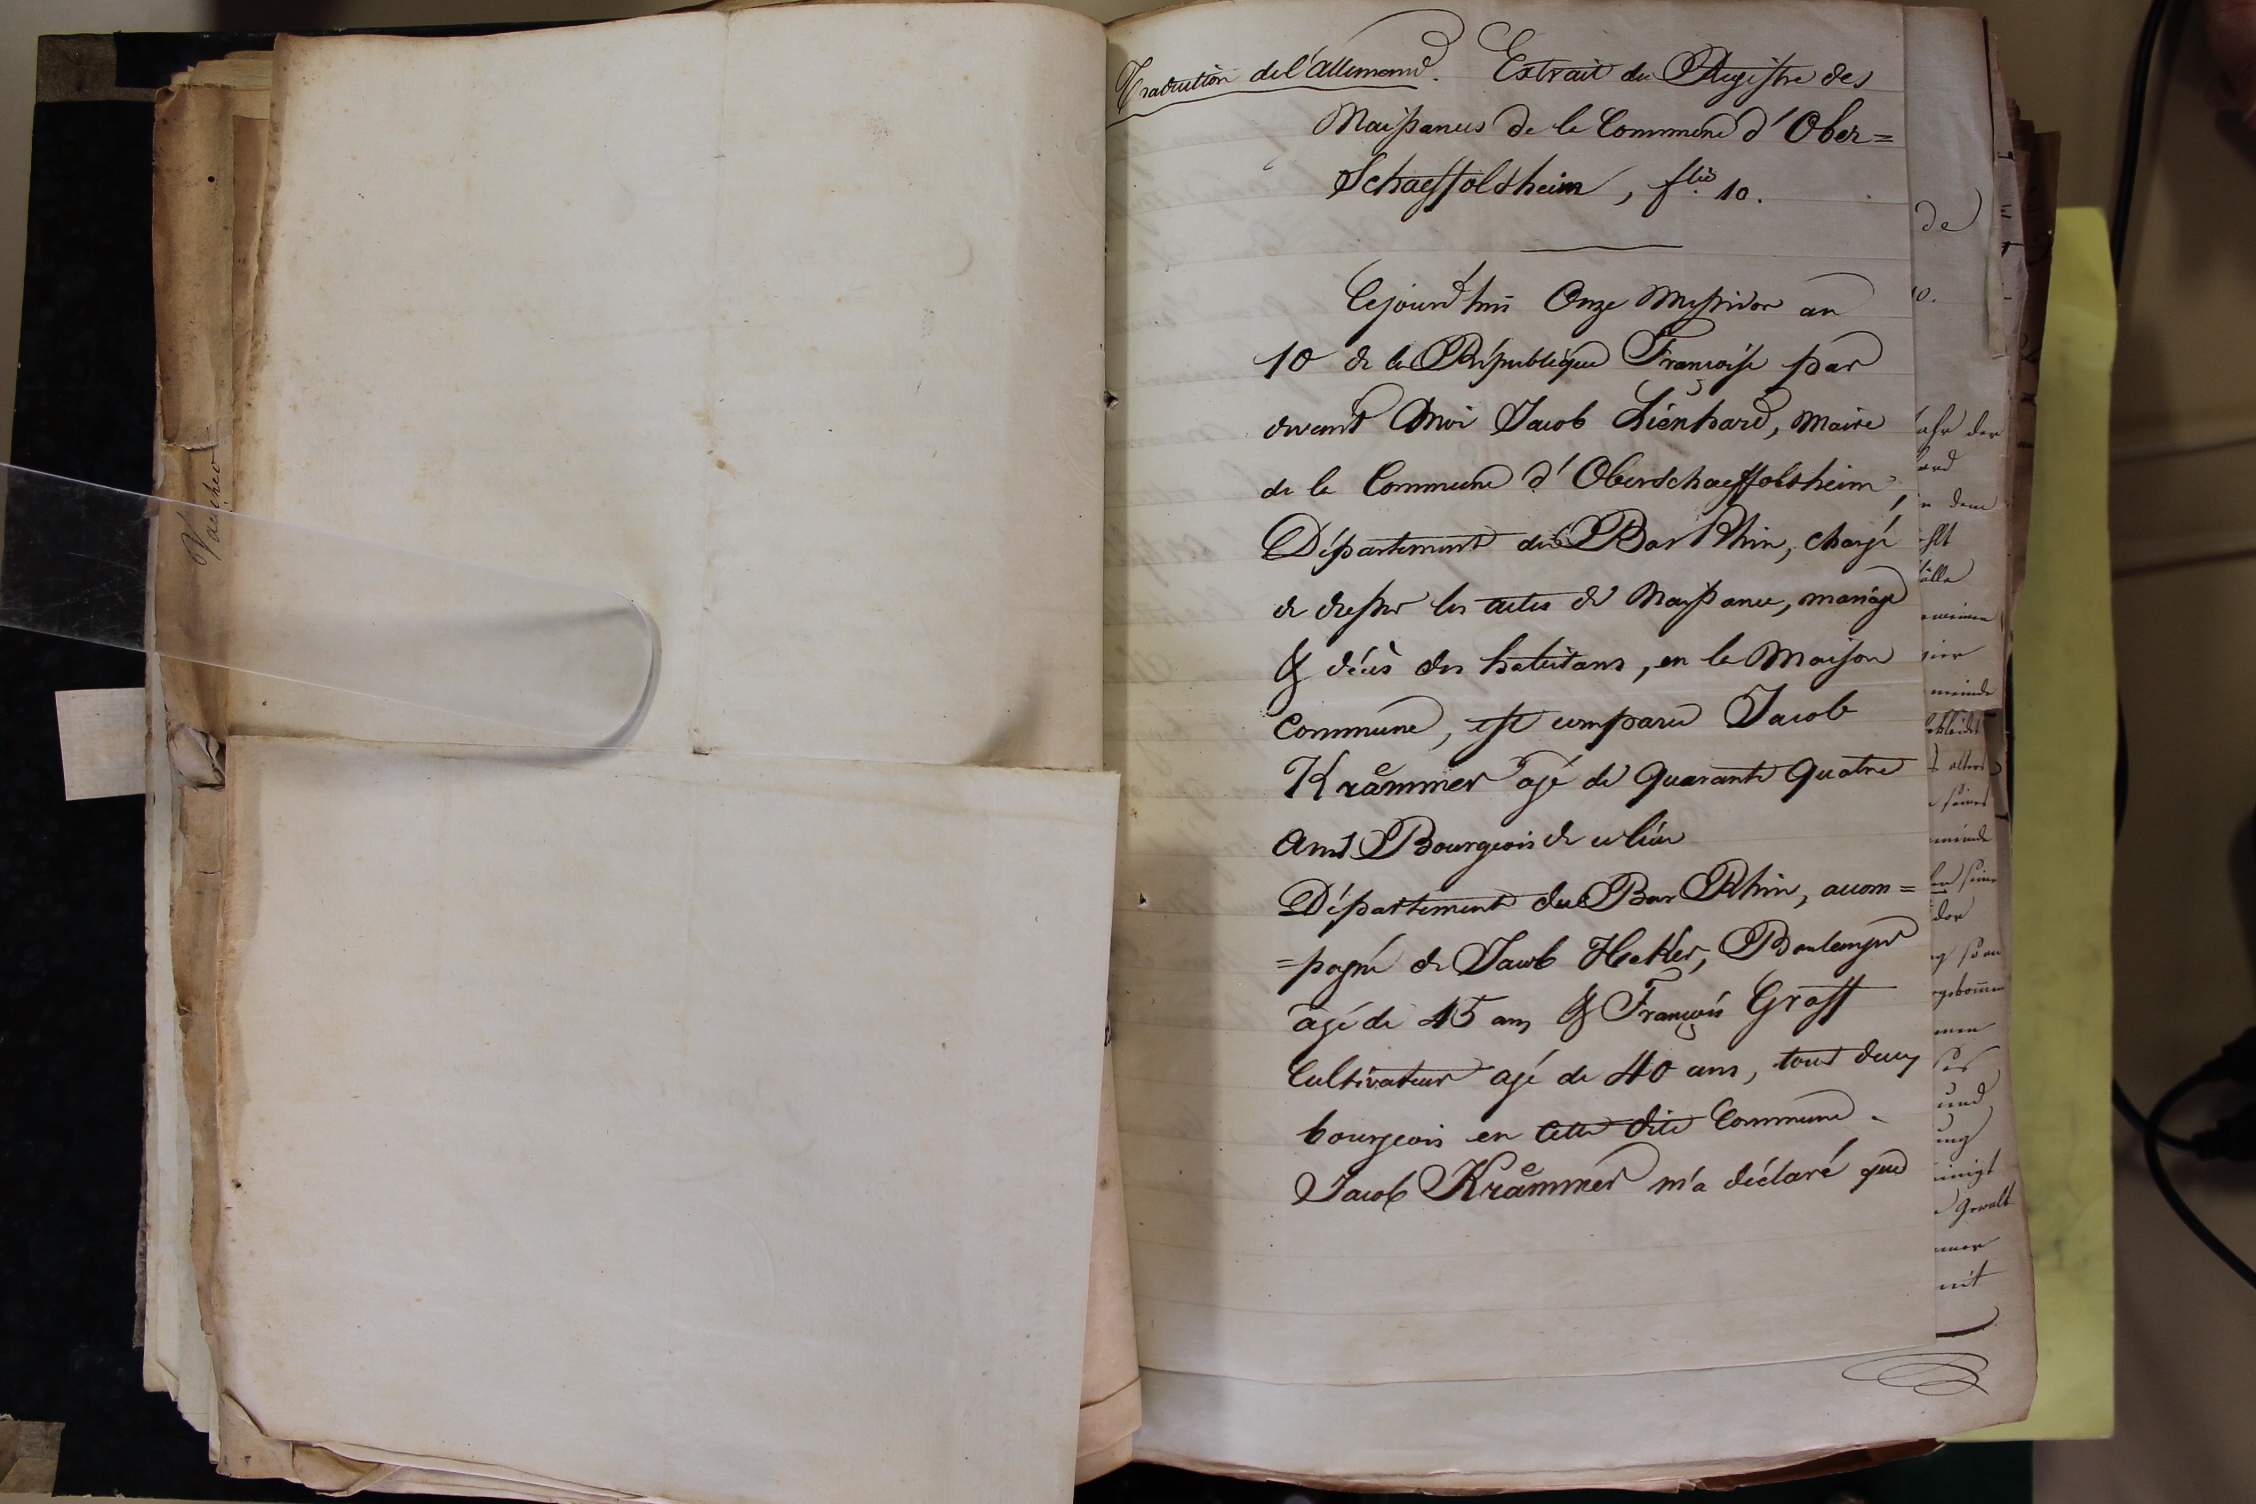 Traduction de l'Allemand. Extrait du Registre des
Naissances de la Commune d'Ober=
Schaeffolsheim, flio 10.
Cejourd'hui Onze Messidor an
10 de la République Françoise par
devant Moi Jacob Liénhard, Maire
de la Commune d'Oberschaeffolsheim,
Département du Bas Rhin, chargé
de dresser les actes de Naissance, mariage
& décès des habitans, en la Maison
Commune, est comparu Jacob
Krämmer agé de Quarante Quatre
Ans Bourgeois de ce lieu
Département du Bas Rhin, accom=
=pagné de Jacob Hekler, Boulanger
âgé de 45 ans & François Graff
Cultivateur agé de 40 ans, tous deux
bourgeois en cette dite Commune.
Jacob Krämmer m'a déclaré que
de
10.
und
Gewalt